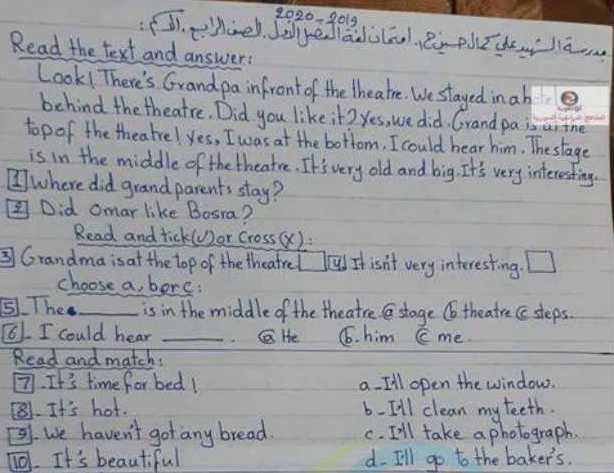 2020-2019
مدرسة الشهيد علي كمال حسين ج2. امتحان لغة الفصل الأول. الصف الرابع. الاسم:
Read the text and answer:
Look! There's Grandpa infront of the theatre. We stayed in a hote
behind the theatre. Did you like it? Yes, we did. Grandpa is at the
top of the theatre! Yes, I was at the bottom. I could hear him. The stage
is in the middle of the theatre. It's very old and big. It's very interesting.
1 Where did grandparents stay?
2 Did Omar like Bosra?
Read and tick(✓) or Cross(X):
3 Grandma is at the top of the theatre 4 It isn't very interesting.
choose a, b or c:
5- The ______ is in the middle of the theatre. a stage b theatre c steps.
6- I could hear ______. a He b. him c me.
Read and match:
7-It's time for bed! a-I'll open the window.
8- It's hot. b-I'll clean my teeth.
9- We haven't got any bread. c-I'll take a photograph.
10- It's beautiful d-I'll go to the baker's.